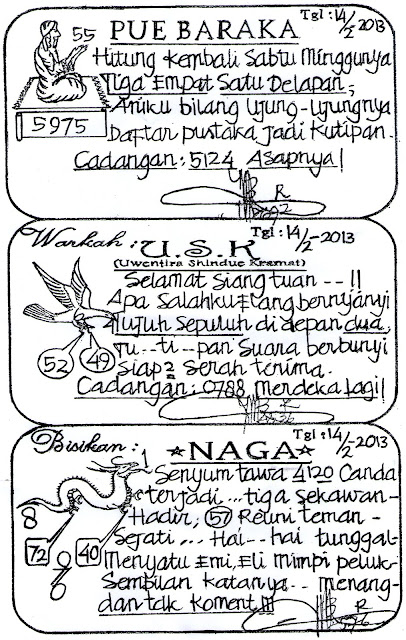 55
PUE BARAKA
Tgl : 14/2-2013
Hitung kembali Sabtu Minggunya
Tiga Empat Satu Delapan,
Anuku bilang Ujung-Ujungnya
5975
Daftar pustaka jadi kutipan.
Cadangan : 5124 Asapnya!
Warkah :
U.S.K
Tgl : 14/2-2013
(Uwentira Shindue Kramat)
Selamat Siang tuan -- !!
Apa Salahku Elang bernyanyi
Tujuh Sepuluh di depan dua,
Tu..ti..pan Suara berbunyi
52 49
Siap2 Serah terima.
Cadangan : 0788 Merdeka lagi!
Bisikan :
NAGA
Tgl : 14/2-2013
1
Senyum tawa 4120 Canda
terjadi...tiga Sekawan-
8
Hadir, 57 Reuni teman -
Sejati... Hai--hai tunggal-
72 40
Menyatu Emi, Eli mimpi peluk-
Sembilan katanya... menang-
dan tak koment !!!